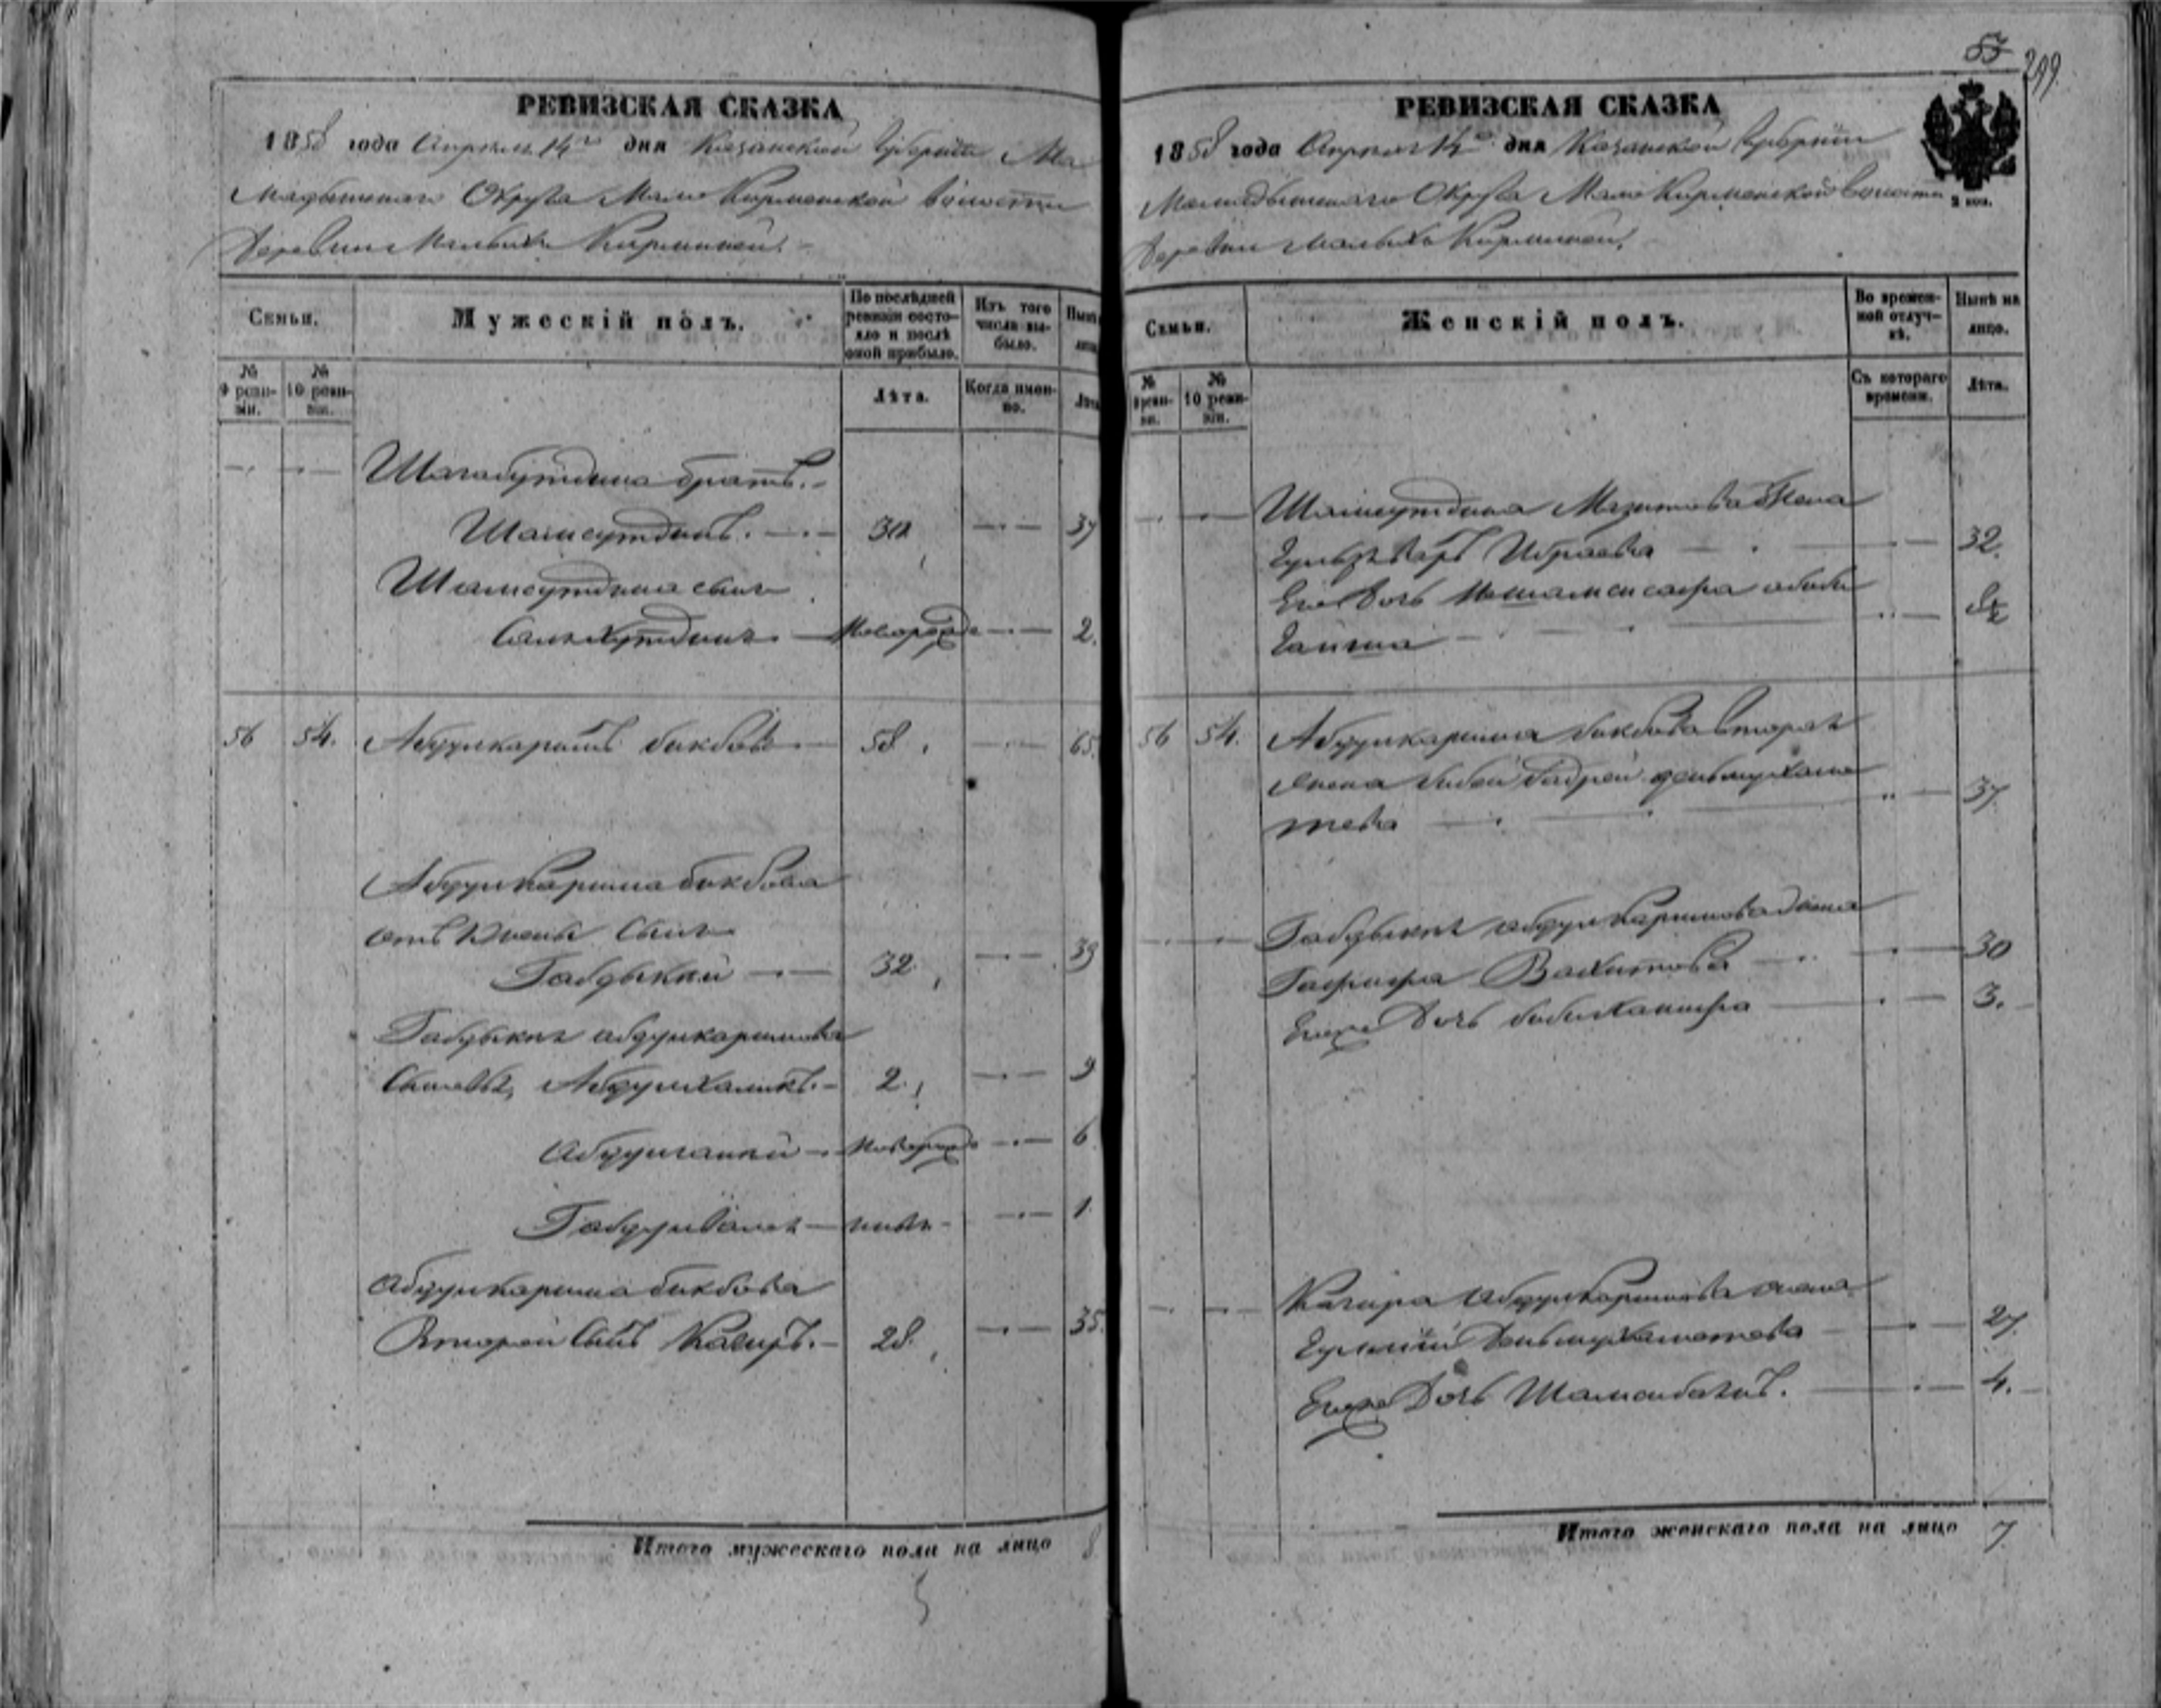 РЕВИЗСКАЯ СКАЗКА
1858 года Апреля 14го дня Казанской Губернии Ма
мадышскаго Округа Мало Кирменской волости
Деревни Малыхъ Кирменей.
Семьи.
Мужескій полъ.
По послѣдней ревизіи состояло и послѣ оной прибыло.
Изъ того числа выбыло.
№ 9 ревизіи.
№ 10 ревизіи.
Лѣта.
Когда именно.
Шагабутдина братъ.
Шамсутдинъ. 30 37
Шамсутдина сынъ
Салахутдинъ новорожд 2.
56 54. Абдулкаримъ Бикбовъ 58. 65.
Абдулкарима Бикбова
сынъ
Габдыкай 32 39
Габдыкая Абдулкаримова
Сыновья, Абдулхаликъ. 2. 9
Абдулганей новорожд 6
Габдулвалей тоже 1
Абдулкарима Бикбова
Второй Сынъ Кагиръ. 28. 35.
Итого мужескаго пола на лицо 8
53
299.
РЕВИЗСКАЯ СКАЗКА
1858 года Апреля 14го дня Казанской Губернии
Мамадышскаго Округа Мало Кирменской Волости
Деревни Малыхъ Кирменей.
Семьи.
Женскій полъ.
Во временной отлучкѣ.
Нынѣ на лицо.
№ 9 ревизіи.
№ 10 ревизіи.
Съ котораго времени.
Лѣта.
Шамсутдина Мазитова Жена
Ибраева 32.
Его Дочь
56 54. Абдулкарима Бикбова вторая
жена Биби Бадрей Дельмухаме
това 37.
Габдыкая Абдулкаримова жена
Гафифа Вахитова 30
Ево Дочь Бибиханифа 3.
Кагира Абдулкаримова жена
Дельмухаметова 27.
Ево Дочь 4.
Итого женскаго пола на лицо 7